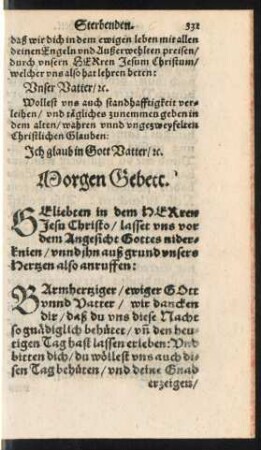 Sterbenden. 531
daß wir dich in dem ewigen leben mit allen
deinen Engeln und Außerwehlten preisen/
durch unsern HERren Jesum Christum/
welcher vns also hat lehren beten:
Vnser Vatter/ꝛc.
Wollest vns auch standhafftigkeit ver-
leihen/ vnd tägliches zunemmen geben in
dem alten/ wahren vnnd vngezweyfelten
Christlichen Glauben:
Ich glaub in Gott Vatter/ꝛc.
Morgen Gebett.
GEliebten in dem HERren
Jesu Christo/ lasset vns vor
dem Angesicht Gottes nider-
knien/ vnnd jhn auß grund vnsers
Hertzen also anruffen:
BArmhertziger/ ewiger GOtt
vnnd Vatter/ wir dancken
dir/ daß du vns diese Nacht
so gnädiglich behütet/ vñ den heu-
tigen Tag hast lassen erleben: Vnd
bitten dich/ du wöllest vns auch di-
sen Tag behüten/ vnd deine Gnad
erzeigen/